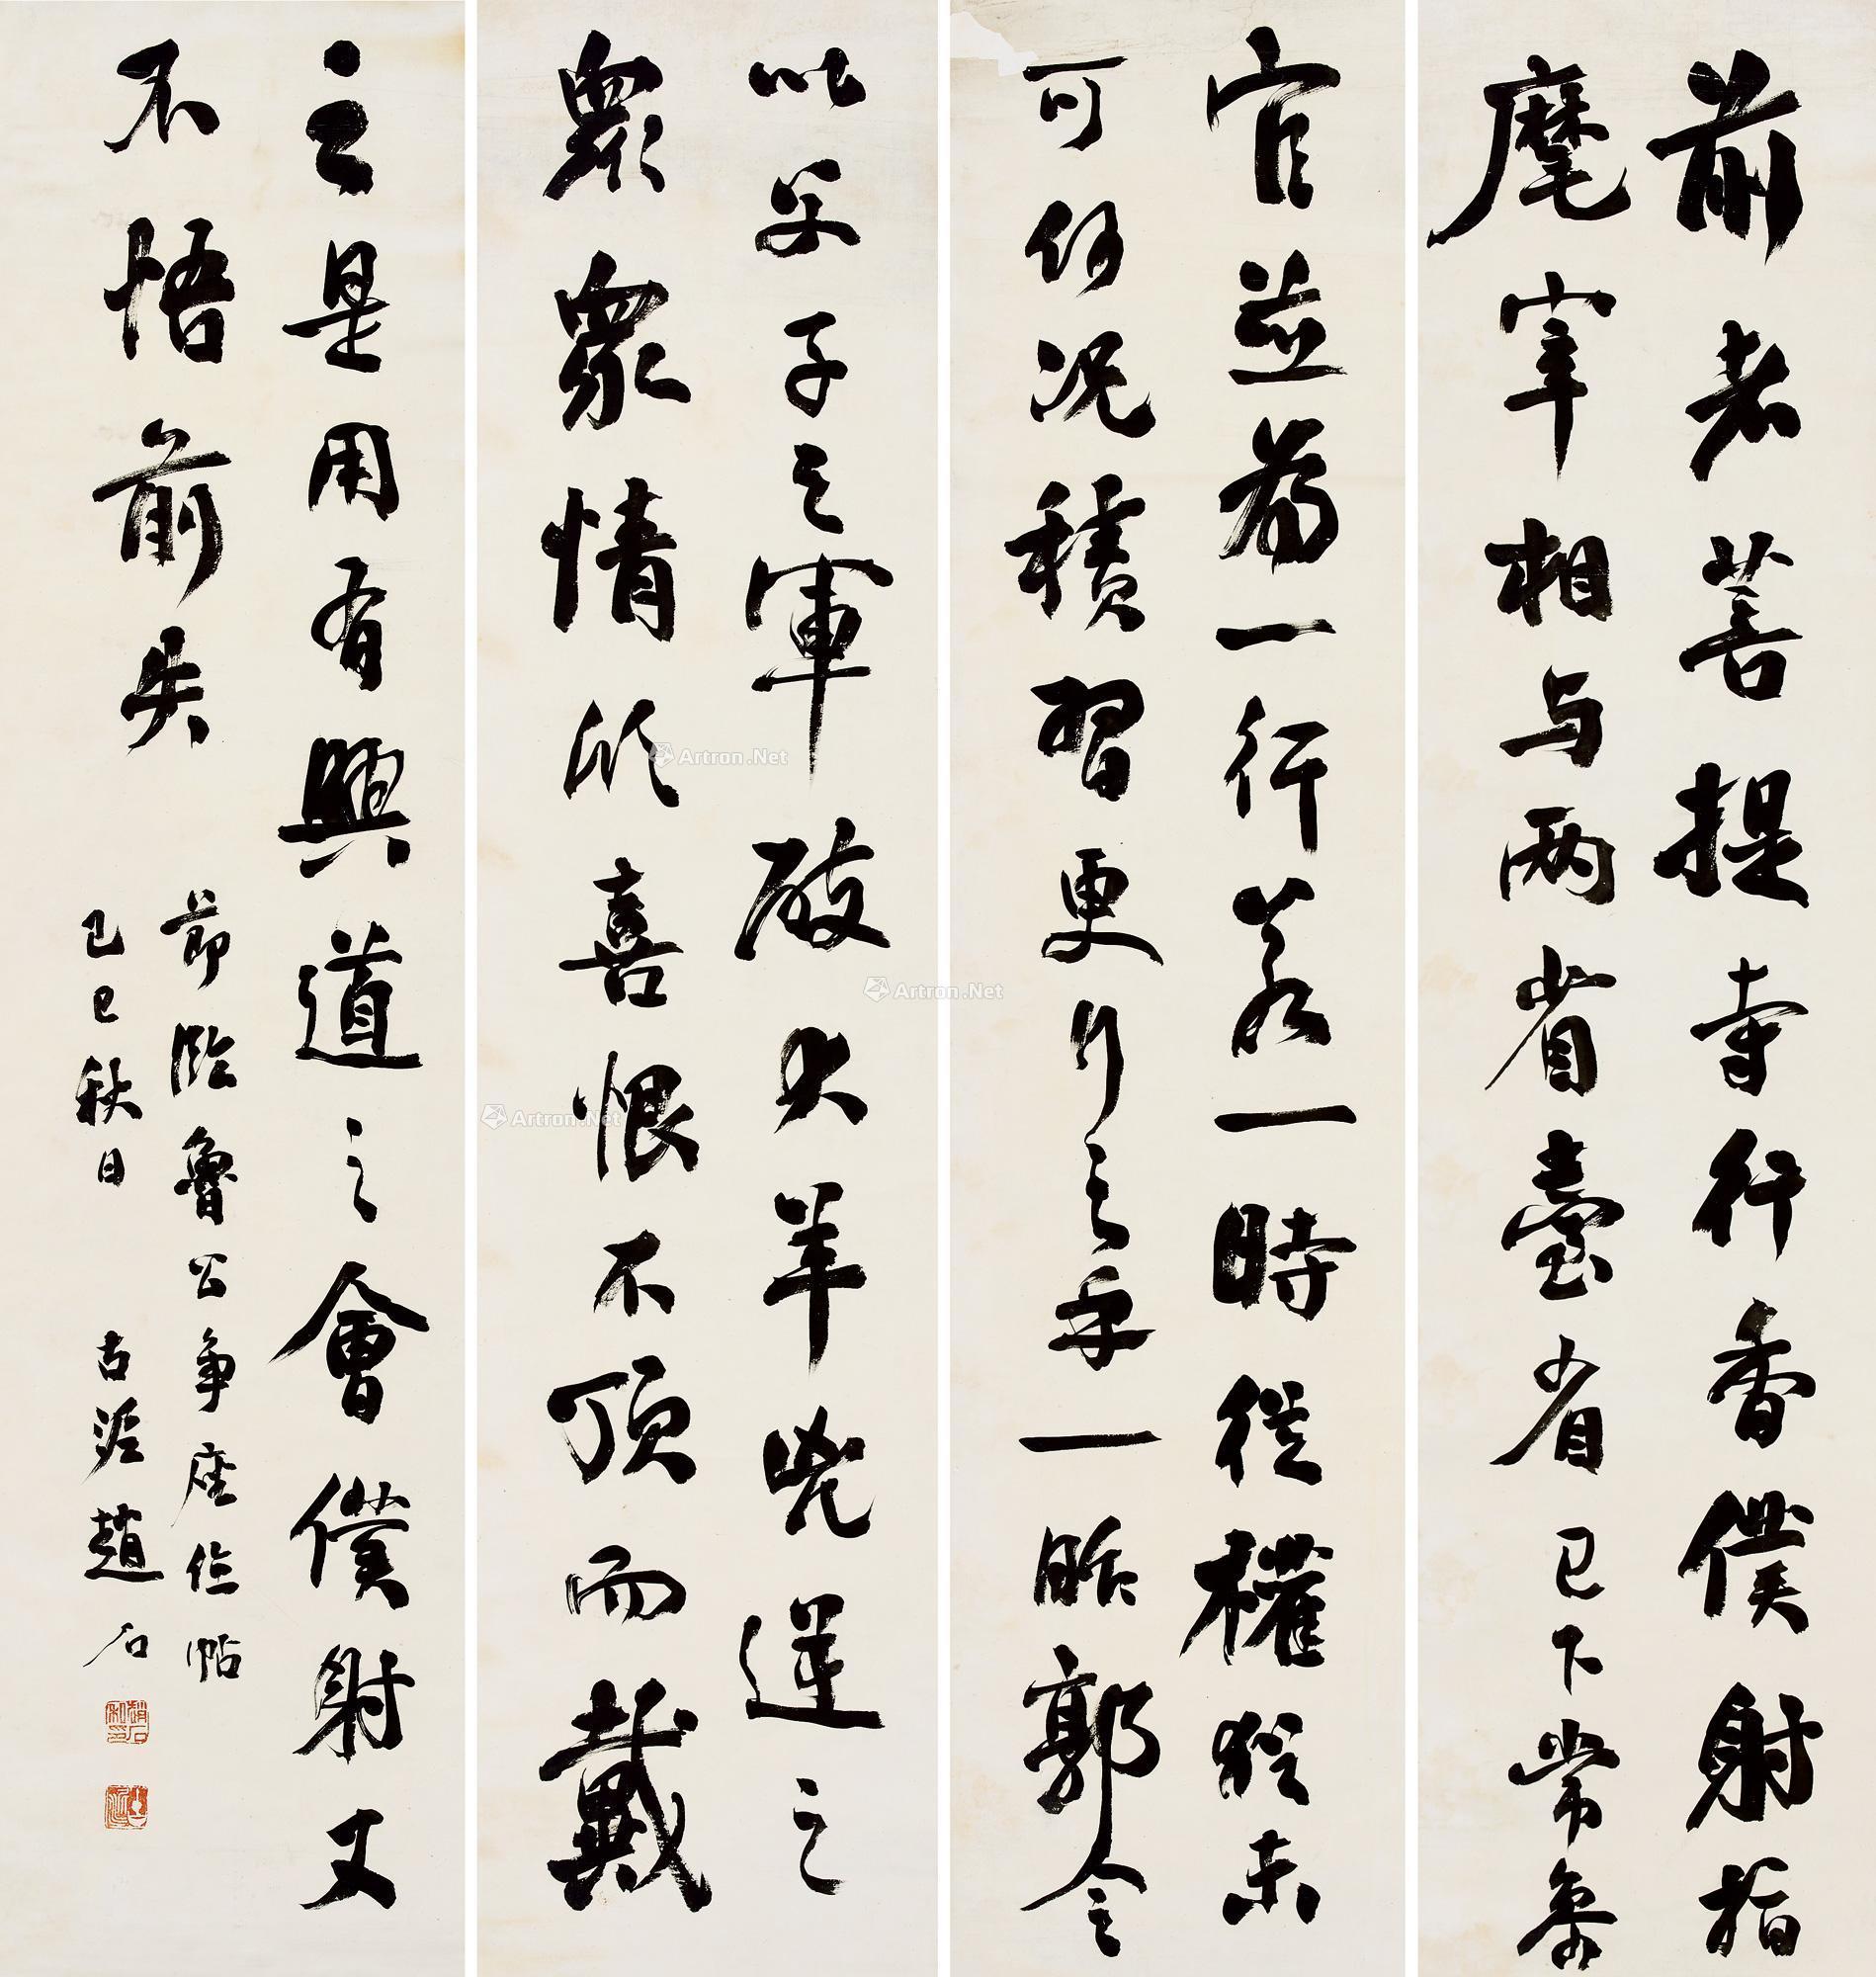 前者菩提寺行香僕射指
麾宰相与两省臺省已下常参
官並為一行若一時從權猶未
可何况積習更行之乎一昨郭令
以父子之軍破犬羊兇逆之
眾眾情欣喜恨不頂而戴
之是用有興道之會僕射又
不悟前失
節臨魯公争座位帖
己巳秋日 古泥趙石
Artron.Net
Artron.Net
Artron.Net